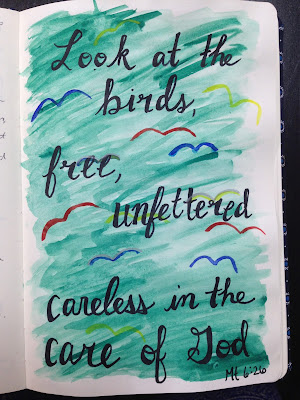 Look at the
birds,
free,
unfettered
careless in the
care of God
Mt 6:26